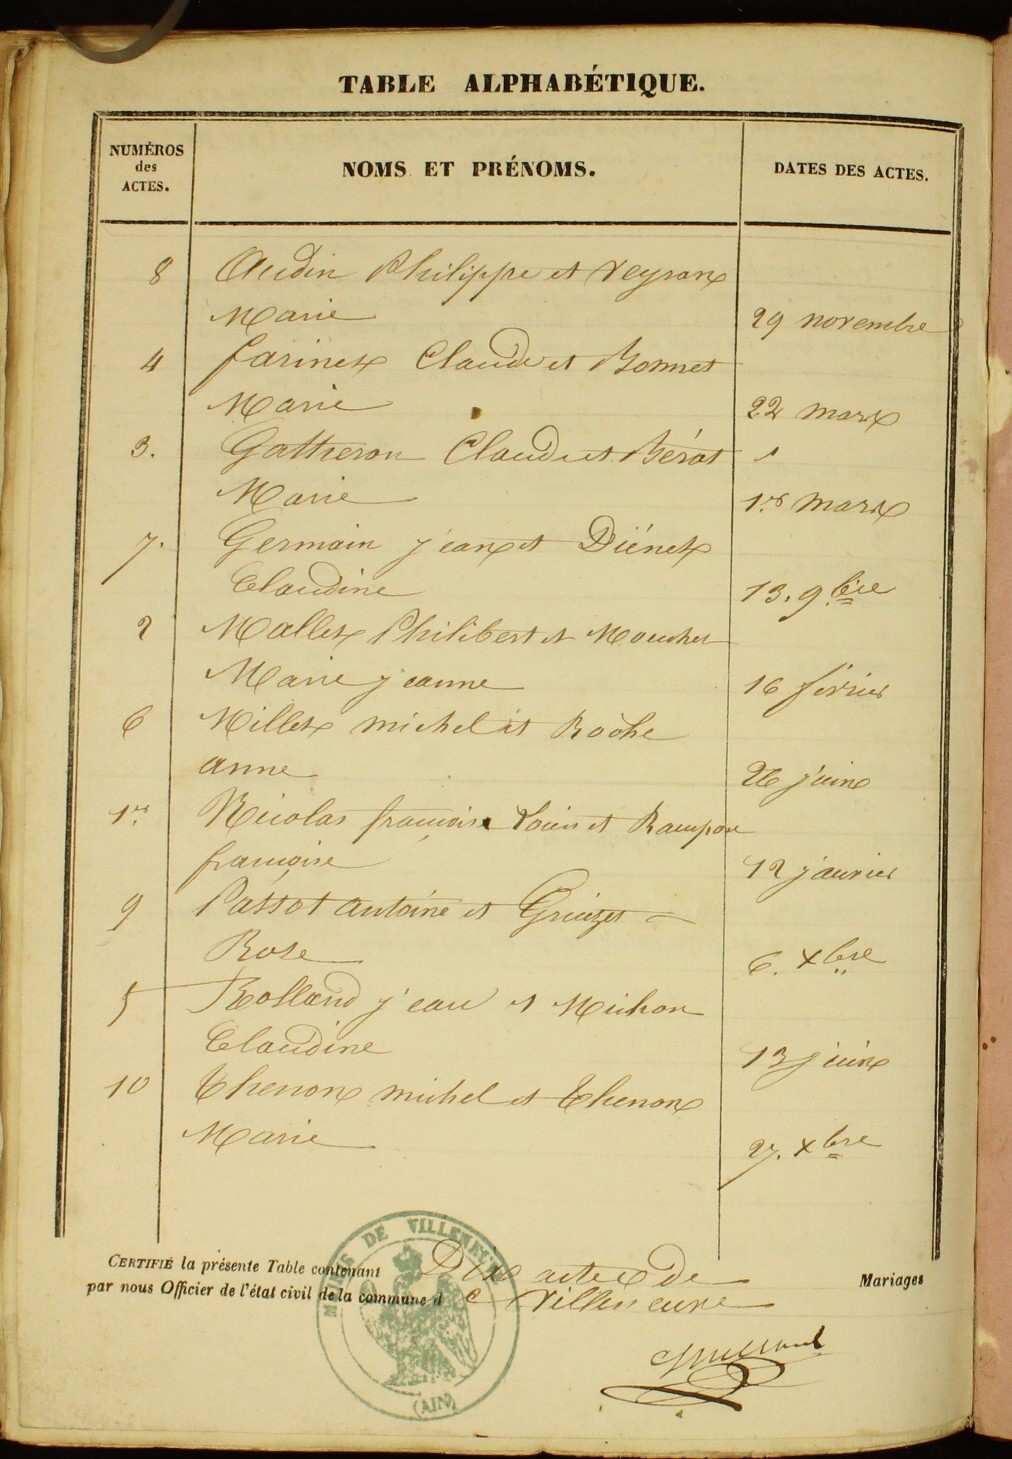 TABLE ALPHABÉTIQUE.
NUMÉROS
des
ACTES.
NOMS ET PRÉNOMS.
DATES DES ACTES.
8 Audin Philippe et Veyron
Marie 29 novembre
4 farinet Claude et Bonnet
Marie 22 mars
3. Gatheron Claude et Bérat
Marie 1er mars
7. Germain jean et Diénet
Claudine 13. 9.bre
2 Mallet Philibert et
Marie jeanne 16 février
6 Millet michel et Roche
anne 26 juin
1er Nicolas françois Louis et Rampon
françoise 12 janvier
9 Passot antoine et
Rose 6. Xbre
5 Rolland jean et Michon
Claudine 13 juin
10 Thenon michel et Thenon
Marie 27. Xbre
CERTIFIÉ la présente Table contenant Dix actes de Mariages
par nous Officier de l'état civil de la commune d e Villeneuve
MAIRIE DE VILLENEUVE
(AIN)